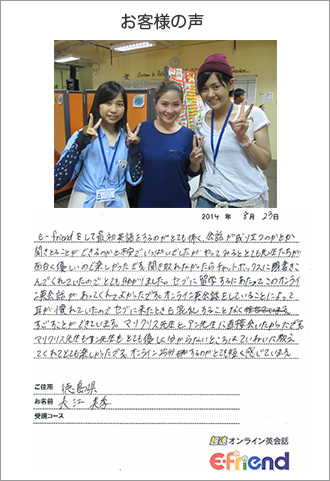 お客様の声
2014 年 8月 23日
e-friendをして最初英語をするのがとても怖く、会話が成り立つのかとか
聞きとることができるのかと不安でいっぱいでしたが、やってみるととても先生たちが
面白く優しいので楽しかったです。聞き取れなかったらチャットボックスに順書きこ
んでくれていたのでとても助かりました。セブに留学するにあたってこのオンライ
ン英会話があってくれてよかったです。オンライン英会話をしていることによって
耳が慣れていたのでセブに来たときも
すごすことができています。マリクリス先生とアン先生に直接会いたかったです。
マリクリス先生もアン先生もとても優しく分からないところはていねいに教え
てくれてとても楽しかったです。オンライン25分
するのがとても短く感じています。
ご住所 徳島県
お名前
受講コース
超速オンライン英会話
E-friend